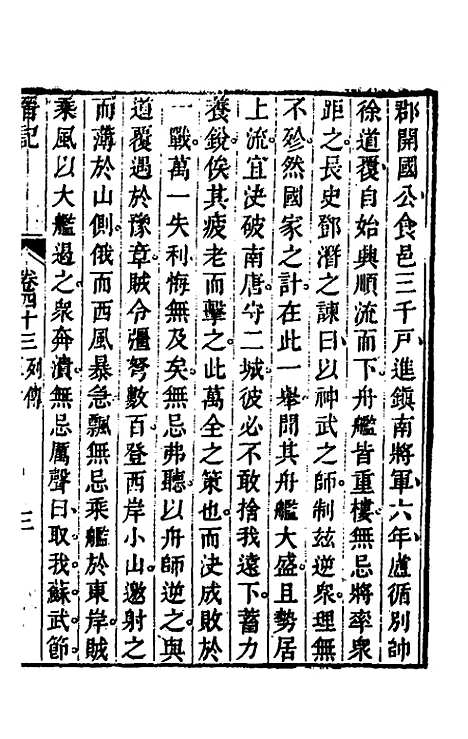 郡開國公食邑三千戸進鎮南將軍六年盧循別帥
徐道覆自始興順流而下舟艦皆重樓無忌將率衆
距之長史鄧潛之諫曰以神武之師制玆逆衆理無
不殄然國家之計在此一舉聞其舟艦大盛且勢居
上流宜決破南唐守二城彼必不敢捨我遠下蓄力
養銳俟其疲老而擊之此萬全之策也而決成敗於
一戰萬一失利悔無及矣無忌弗聽以舟師逆之與
道覆遇於豫章賊令彊弩數百登西岸小山邀射之
而薄於山側俄而西風暴急飄無忌乘艦於東岸賊
乘風以大艦逼之衆奔潰無忌厲聲曰取我蘇武節
晉記 卷四十三 列傳 三